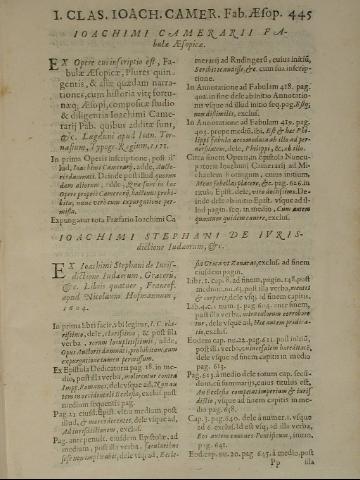 I. CLAS. IOACH. CAMER. Fab. Æsop. 445
IOACHIMI CAMERARII FA-
bulæ Æsopicæ.
EX Opere cui inscriptio est, Fa-
bulæ Æsopicæ, Plures quin-
gentis, & aliæ quædam narra-
tiones, cum historia vitę fortu-
naq; Æsopi, compositæ studio
& diligentia Ioachimi Came-
rarij Pab. quibus additæ sunt,
&c. Lugduni apud Ioan. Tor-
nasium, Typogr. Regium, 1571.
In prima Operis inscriptione, post il-
lud, Ioachimi Camerarij, adde, Aucto-
ris damnati. Deinde post illud
dam aliorum, adde, & sunt in hoc
Opere propria Camerarij hactenus prohi-
bita, nunc verò cum expurgatione per-
missa.
Expungatur tota Præfatio Ioachimi Ca
merarij ad Rudingerū, cuius initiū,
&c. cum sua inscrip-
tione.
In Annotatione ad Fabulam 418. pag.
400. in fine dele ab initio Annotatio-
nis vsque ad illud initio seq. pag.
non dissimilis, excluſ.
In Annotatione ad Fabulam 419. pag.
403. prope mediū. ibi, Est & hæc Phi-
lippi fabula accommodata ab illo ad per-
dele, Philippi, &, ab illo.
Circa finem Operis, in Epistola Nuncu-
patoria Ioachimi Camerarij ad Mi-
chaelem cuius initium,
Meas fabellas placere, &c. pag. 626. in
titulo Epist. dele, Dein-
de dele ab initio Epist. vsque ad il-
lud pagin. seq. in medio, Cum autem
quidem cuxere, excluſ.
IOACHIMI STEPHANI DE IVRIS-
dictione Iudæorum, &c.
EX Ioachimi Stephani de Iuris-
dictione Iudæorum, Græcorū,
&c. Libris quatuor, Francof.
apud Nicolaum Hofmannum,
1604.
In primi libri facie vbi legitur, I. C. cla-
rissimo, dele, clarissimo, & post illa
verba, rerum locupletissimis, adde,
Opus Auctoris damnati; prohibitum, cum
expurgatione tamen permissum.
Ex Epistola Dedicatoria pag. 18. in me-
dio, post illa verba,
Imp. Romano, dele vsque ad, Non au
tem in occidentali Ecclesia, excluſ. post
medium sequentis pag.
Pag. 22. eiusd. Epist. vltra medium post
illud, & dele vsque ad,
excluſ.
Pag. antepenult. eiusdem Epistolæ, ad
medium, post illa verba, sæcularibus
dele vsq; ad, Eccle-
siæ Græcæ vt Zonaras, excluſ. ad finem
eiusdem pagin.
Libr. 1. cap. 8. ad finem, pagin. 148. post
medium, nu. 45. post illa verba,
& corporis, dele vsq; ad finem capitis.
Lib. 4. C. 1. num. 5. pag. 604. ante finem,
post illa verba,
tur, dele vsque ad, Hoc autem prædica-
tis, excluſ.
Eodem cap. nu. 22. pag. 611. post initiū,
post illa verba, vniuersalem hæreditatē,
dele vsque ad finem capitis in medio
pag. 615.
Pag. 615. à medio dele totum cap. secū-
dum, cū summarijs, cuius titulus est,
An Ecclesiæ competat imperium & iuris
dictio, vsque ad finem capitis in me-
dio pag. 618.
Cap. 3. pag. 640. dele à numer. 1. vsque
ad 6. exclusd. id est, vsq; ad illa verba,
Eos autem conuocat Pontificum, initio
pag. 641.
Eod. cap. nu. 20. pag. 645. à medio, post
Pp illa